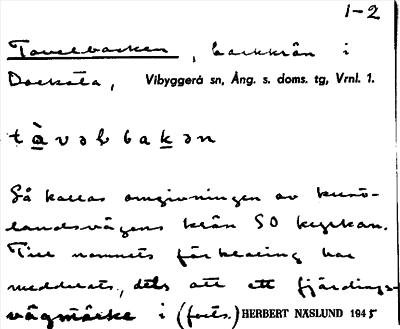 1-2
Tavelbacken, backkrön i
Docksta, Vibyggerå sn, Ång. s. doms. tg, Vrnl. 1.
tàvəlbakən
Så kallas omgivningen av kust-
landsvägens krön SO kyrkan.
Till namnets förklaring har
meddelats, dels att ett fjärdings-
vägmärke i (forts.) HERBERT NÄSLUND 1945